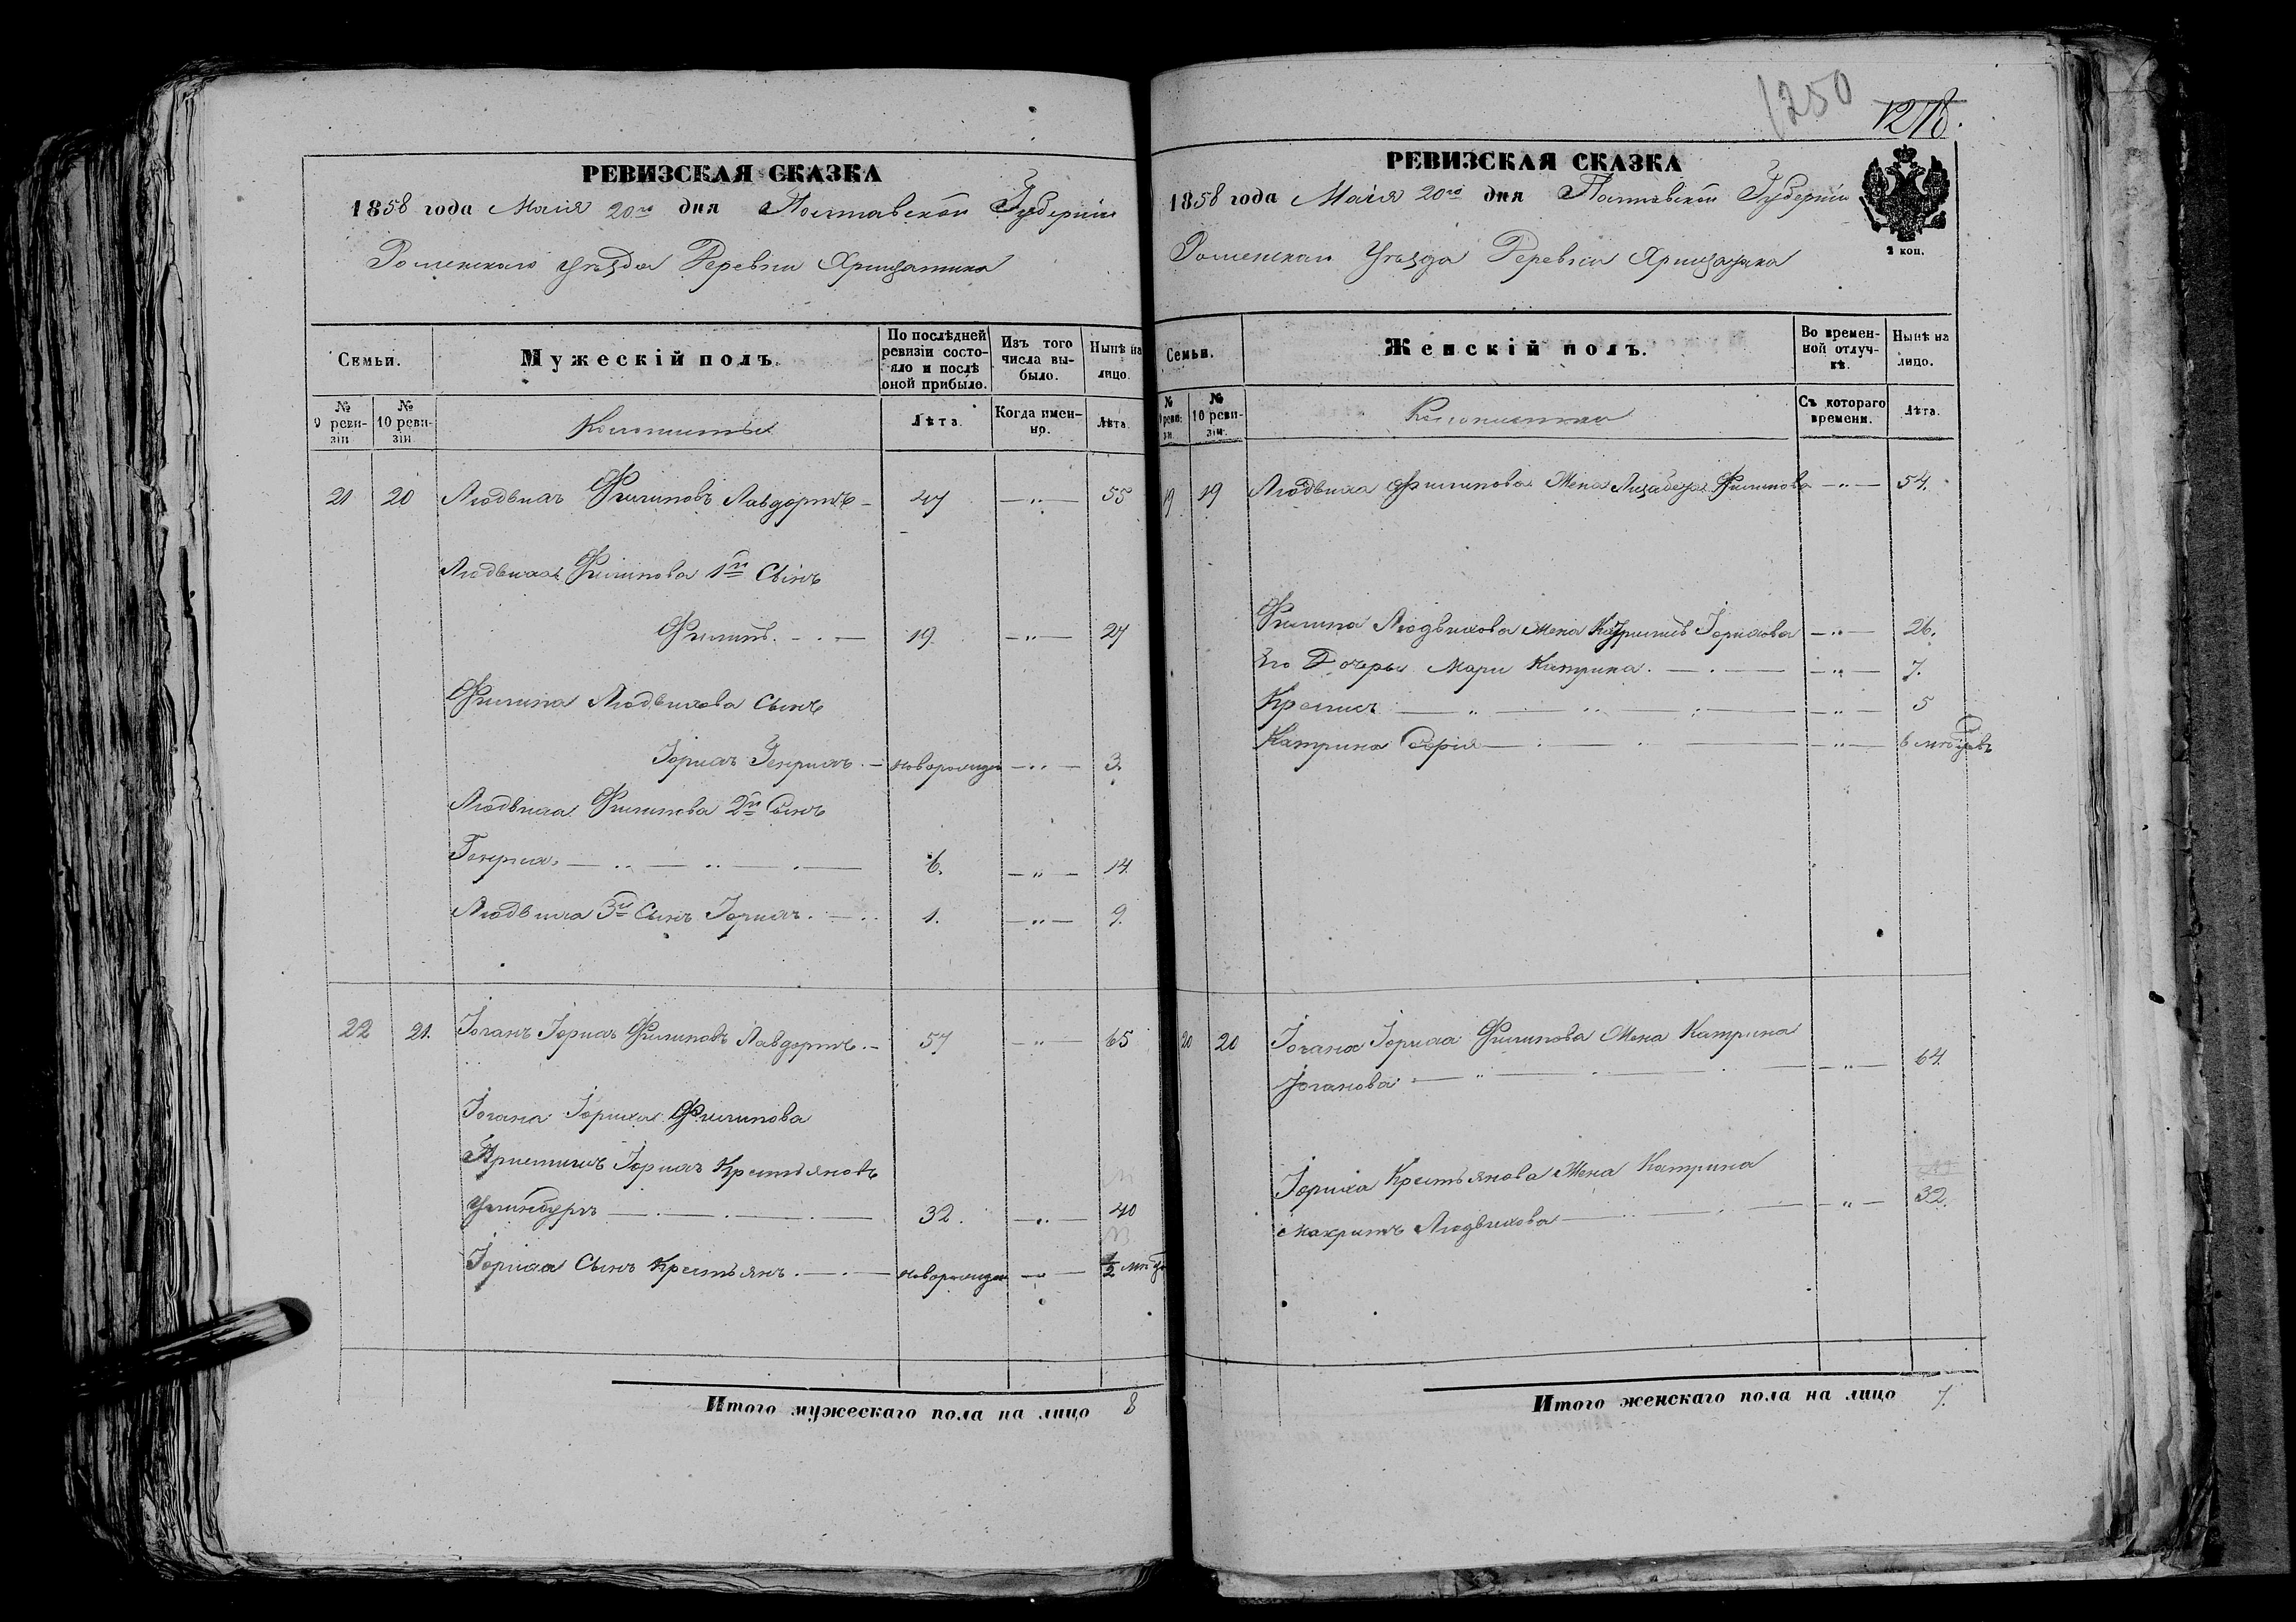 1250
1278.
РЕВИЗСКАЯ СКАЗКА
1858 года Маія 20го дня Полтавской Губерніи
Роменскаго уѣзда Деревни Хрищатика
Семьи.
Мужескій полъ.
По послѣдней ревизіи состояло и послѣ оной прибыло.
Изъ того числа выбыло.
Нынѣ на лицо.
№ 9 ревизіи
№ 10 ревизіи.
Колонисты
Лѣта.
Когда именно.
Лѣта
21 20 Людвихъ Филиповъ Лавдортъ - 47 — „ — 55
Людвиха Филипова 1й Сынъ
Филипъ. 19. — „ — 27
Филипа Людвихова Сынъ
Іорихъ Генрихъ. — новорожден — „ — 3.
Людвиха Филипова 2й Сынъ
Генрих. — „ — „ — 6. — „ — 14.
Людвиха 3й Сынъ Іорихъ. — 1. — „ — 9.
22 21. Іоганъ Іорихъ Филиповъ Лавдортъ. - 57 — „ — 65
Іогана Іориха Филипова
Пріемышъ Іорихъ Крестьяновъ
32. — „ — 40
Іориха Сынъ Крестьянъ. — новорожден — „ — 1/2 мѣ
Итого мужескаго пола на лицо 8
РЕВИЗСКАЯ СКАЗКА
1858 года Маія 20го дня Полтавской Губерніи
2 коп.
Роменскаго Уѣзда Деревни
Семьи.
Женскій полъ.
Во временной отлучкѣ.
Нынѣ на лицо.
№ 9 ревизіи.
№ 10 ревизіи.
Колонистки
Съ котораго времени.
Лѣта.
19 19 Людвиха Филипова Жена Лизабета Филипова — „ — 54.
Филипа Людвихова Жена Іорихова — „ — 26.
Его Дочеры Мари Катрина. — „ — 7.
— „ — 5
Катрина Софія — „ — 6 мѣсяцовъ
20 20 Іогана Іориха Филипова Жена Катрина
Іоганова — „ — 64.
Іориха Крестьянова Жена Катрина
Макритъ Людвихова — „ — 32.
Итого женскаго пола на лицо 7.